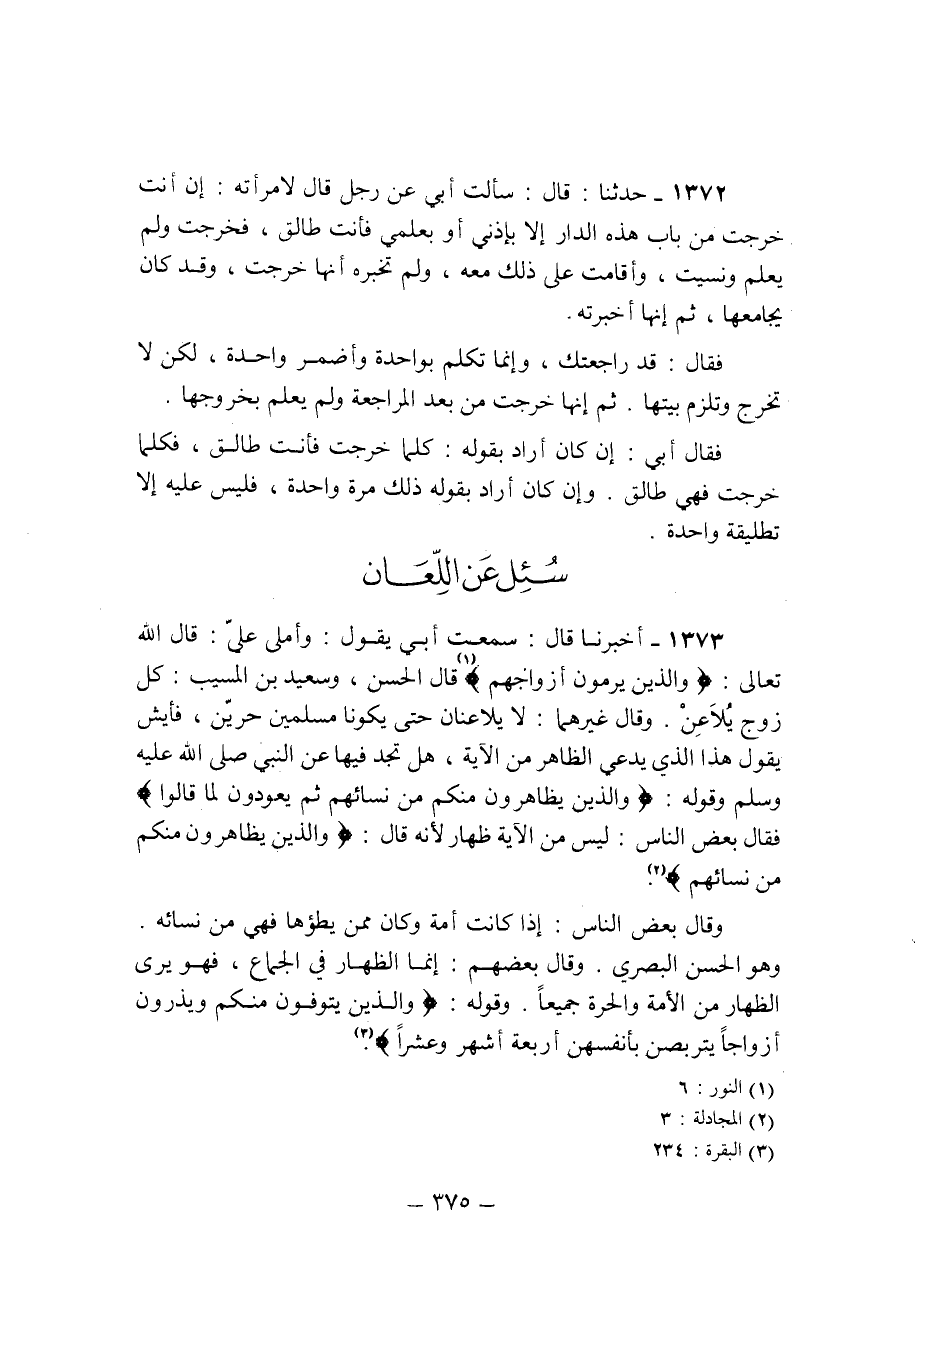 ١٣٧٢ ـ حدثنا : قال : سألت أبي عن رجل قال لامرأته : إن أنت
خرجت من باب هذه الدار إلا بإذني أو بعلمي فأنت طالق ، فخرجت ولم
يعلم ونسيت ، وأقامت على ذلك معه ، ولم تخبره أنها خرجت ، وقد كان
يجامعها ، ثم إنها أخبرته .
فقال : قد راجعتك ، وإنما تكلم بواحدة وأضمر واحدة ، لكن لا
تخرج وتلزم بيتها . ثم إنها خرجت من بعد المراجعة ولم يعلم بخروجها .
فقال أبي : إن كان أراد بقوله : كلما خرجت فأنت طالق ، فكلما
خرجت فهي طالق . وإن كان أراد بقوله ذلك مرة واحدة ، فليس عليه إلا
تطليقة واحدة .
سُئِل عَن اللِّعَان
١٣٧٣ ـ أخبرنا قال : سمعت أبي يقول : وأملى عليّ : قال الله
تعالى : ﴿ والذين يرمون أزواجهم ﴾(١) قال الحسن ، وسعيد بن المسيب : كل
زوج يُلاَعِنْ . وقال غيرهما : لا يلاعنان حتى يكونا مسلمين حريّن ، فأيش
يقول هذا الذي يدعي الظاهر من الآية ، هل تجد فيها عن النبي صلى الله عليه
وسلم وقوله : ﴿ والذين يظاهرون منكم من نسائهم ثم يعودون لما قالوا ﴾
فقال بعض الناس : ليس من الآية ظهار لأنه قال : ﴿ والذين يظاهرون منكم
من نسائهم ﴾(٢) .
وقال بعض الناس : إذا كانت أمة وكان ممن يطؤها فهي من نسائه .
وهو الحسن البصري . وقال بعضهم : إنما الظهار في الجماع ، فهو يرى
الظهار من الأمة والحرة جميعاً . وقوله : ﴿ والذين يتوفون منكم ويذرون
أزواجاً يتربصن بأنفسهن أربعة أشهر وعشراً ﴾(٣) .
(١) النور : ٦
(٢) المجادلة : ٣
(٣) البقرة : ٢٣٤
ـ ٣٧٥ ـ